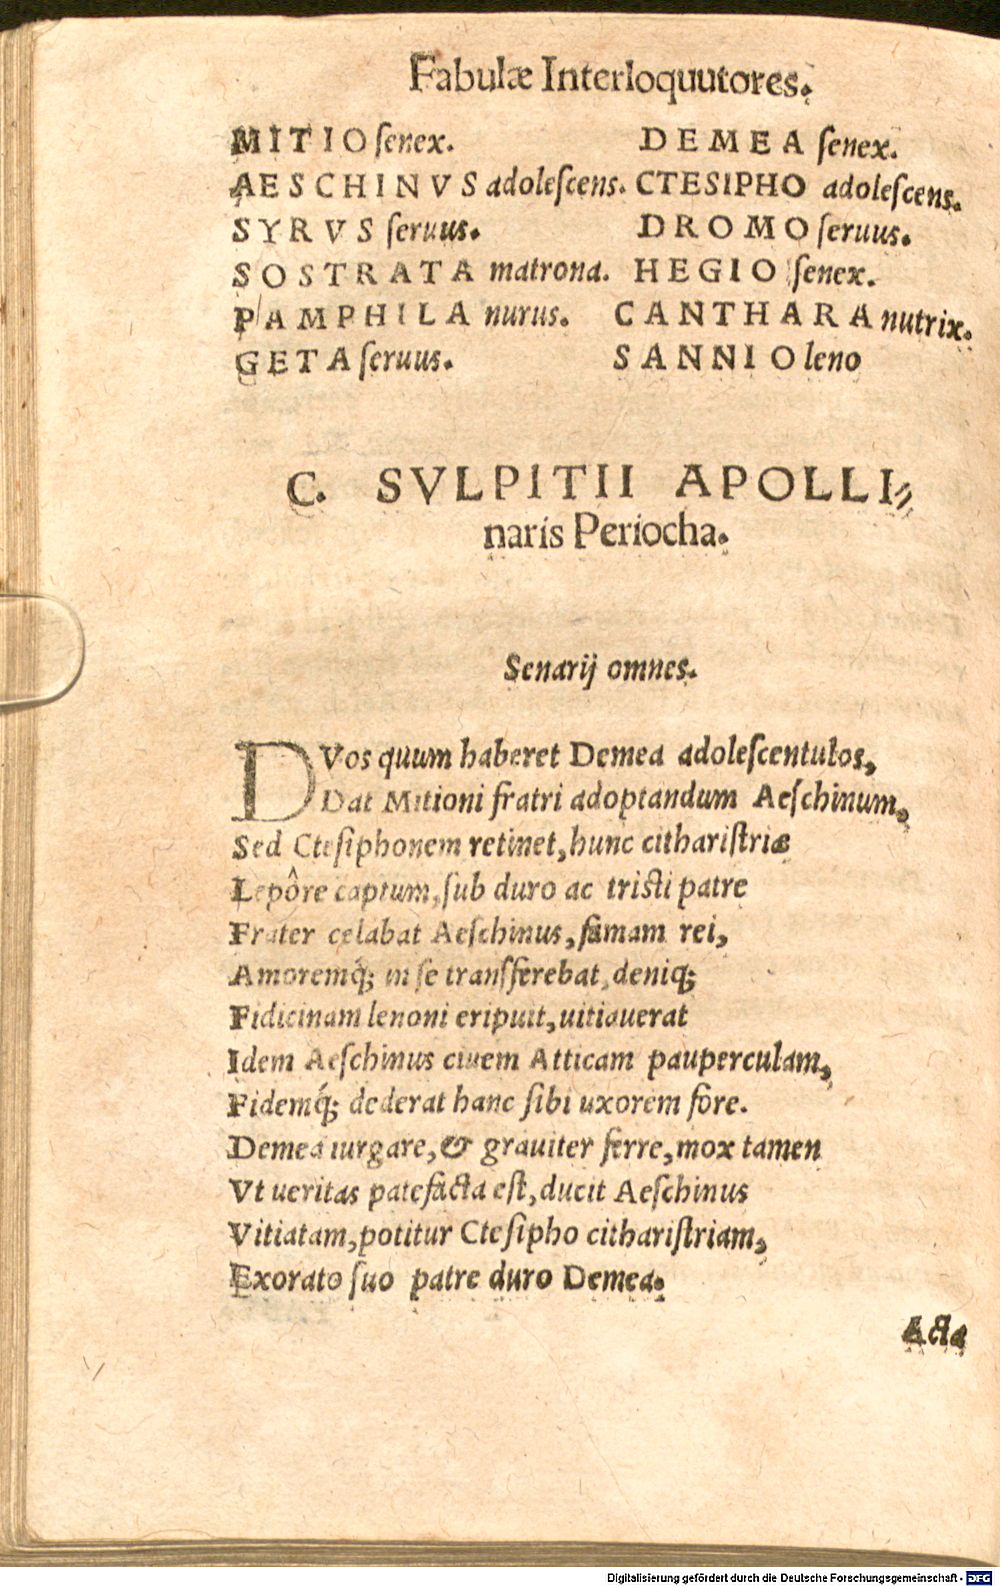 Fabulæ Interloquutores.
MITIO ſenex. DEMEA ſenex.
AESCHINVS adoleſcens. CTESIPHO adoleſcens.
SYRVS ſeruus. DROMO ſeruus.
SOSTRATA matrona. HEGIO ſenex.
PAMPHILA nurus. CANTHARA nutrix.
GETA ſeruus. SANNIO leno
C. SVLPITII APOLLI⸗
naris Periocha.
Senarij omnes.
DVos quum haberet Demea adoleſcentulos,
Dat Mitioni fratri adoptandum Aeſchinum,
Sed Cteſiphonem retinet, hunc cithariſtriæ
Lepôre captum, ſub duro ac triſti patre
Frater celabat Aeſchinus, famam rei,
Amoremq́; in ſe tranſferebat, deniq;
Fidicinam lenoni eripuit, uitiauerat
Idem Aeſchinus ciuem Atticam pauperculam,
Fidemq́; dederat hanc ſibi uxorem fore.
Demea iurgare, & grauiter ferre, mox tamen
Vt ueritas patefacta eſt, ducit Aeſchinus
Vitiatam, potitur Cteſipho cithariſtriam,
Exorato ſuo patre duro Demea.
Acta
Digitalisierung gefördert durch die Deutsche Forschungsgemeinschaft - DFG